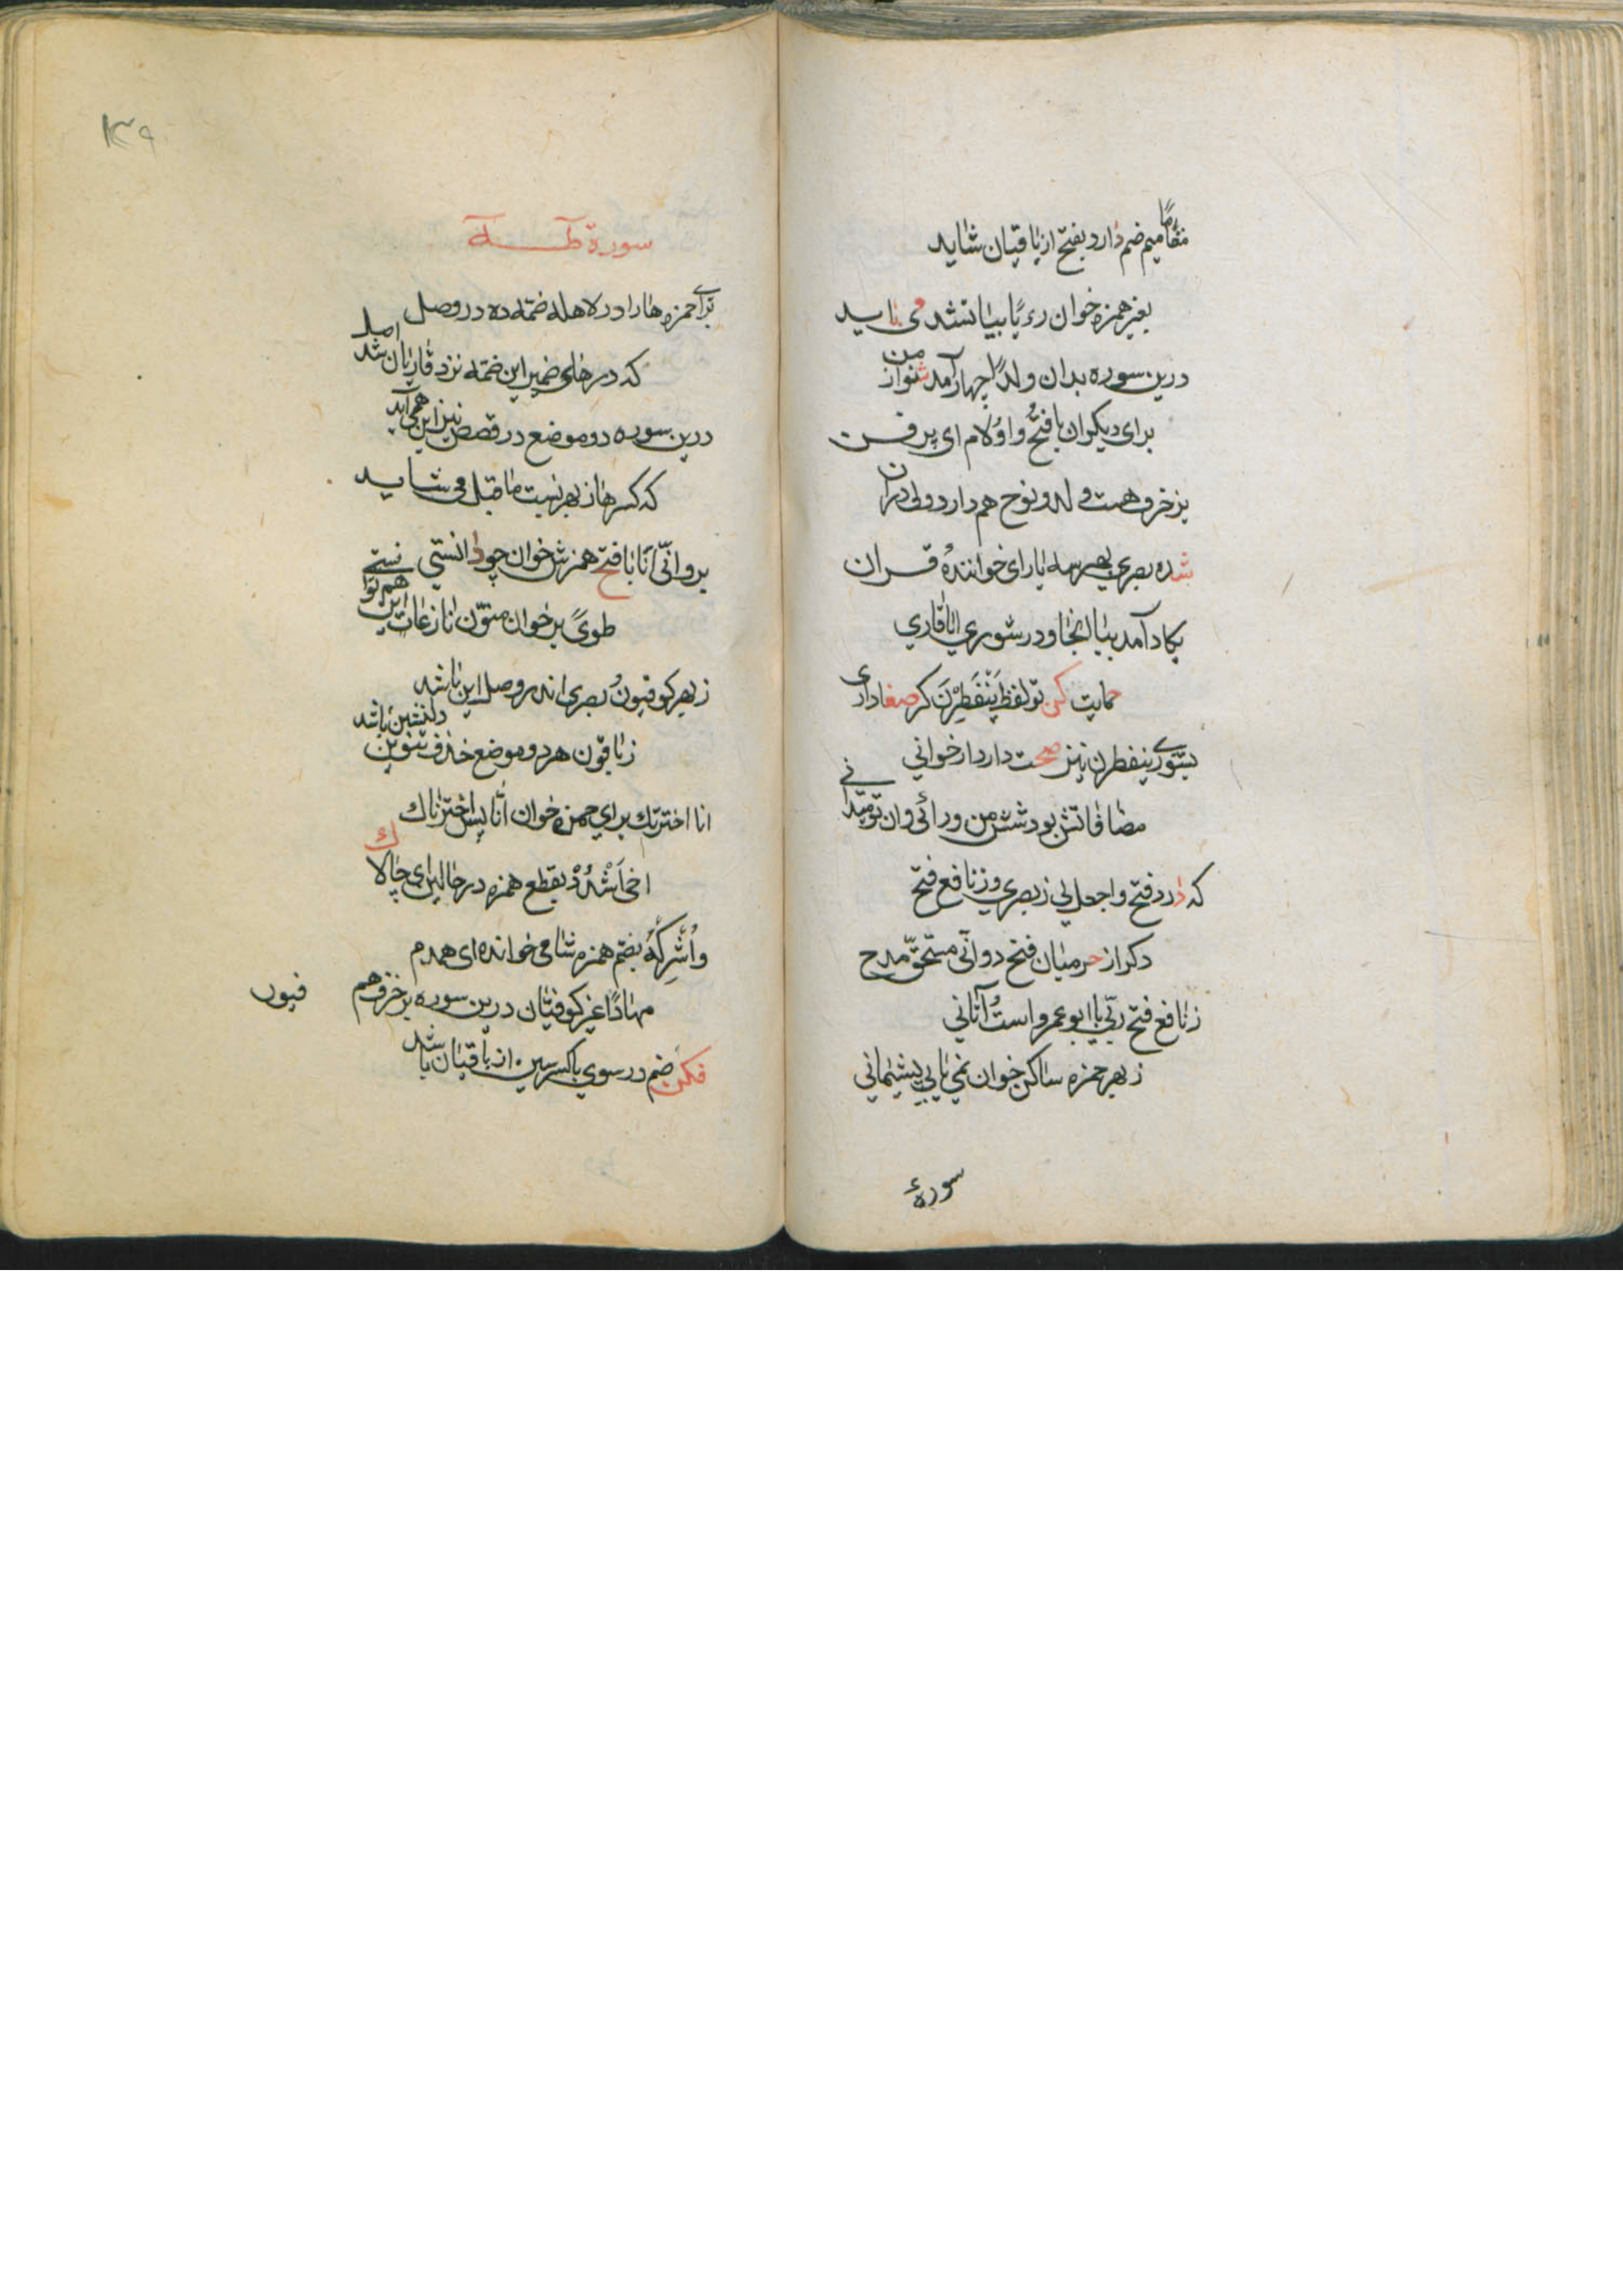 مقامًا میم ضم دارد بفتح از باقیان شاید
بغیر همزه خوان رءیًا بیا تشدید می باید
درین سوره بدان ولدًا چهار آمد شنو از من
برای دیکران با فتح واو و لام ای پر فن
بزخرف هست و له و نوح هم دارد ولی در آن
شده بصری بهر سه یار ای خوانندهٔ قران
یکاد آمد بیا اینجا و در شوری ایا قاری
حمایت کن تو لفظ یَنْفَطِرْنَ کر صفا داری
بشوری ینفطرن نیز صحت دارد ار خوانی
مضافاتش بود شش من ورائی وان تو میدانی
که دارد فتح واجعل لی ز بصری و ز نافع فتح
دکر از حرمیان فتح دو انّی مستحقّ مدح
ز نافع فتح ربّی با ابو عمرو است آتانی
ز بهر حمزه ساکن خوان نمی یابی پشیمانی
سورهٔ
١٣٩
سورة طه
برای حمزه ها را در لاهله ضمّه ده در وصل
که در های ضمیر این ضمّه نزد قاریان شد اصل
درین سوره دو موضع در قصص نیز این همی آید
که کسر ها ز بهر نسبت ما قبل می شاید
برو انّی انا با فتح همزش خوان چو دانستی
طویً بر خوان منوّن نازعات این هم توانستی
ز بهر کوفیون و بصری اندر وصل این باشد
ز باقون هر دو موضع حذف تنوین دلنشین باشد
انا اخترتك برای حمزه خوان أنّا پس اخترناك
اخی اَشْدُدْ بقطع همزه در حالین ای چالاك
واُشْرِكْهُ بضمّ همزه شامی خوانده ای همدم
مهادًا غیر کوفیان درین سوره بزخرف هم
فکن ضم در سوی با کسر سین از باقیان باشد